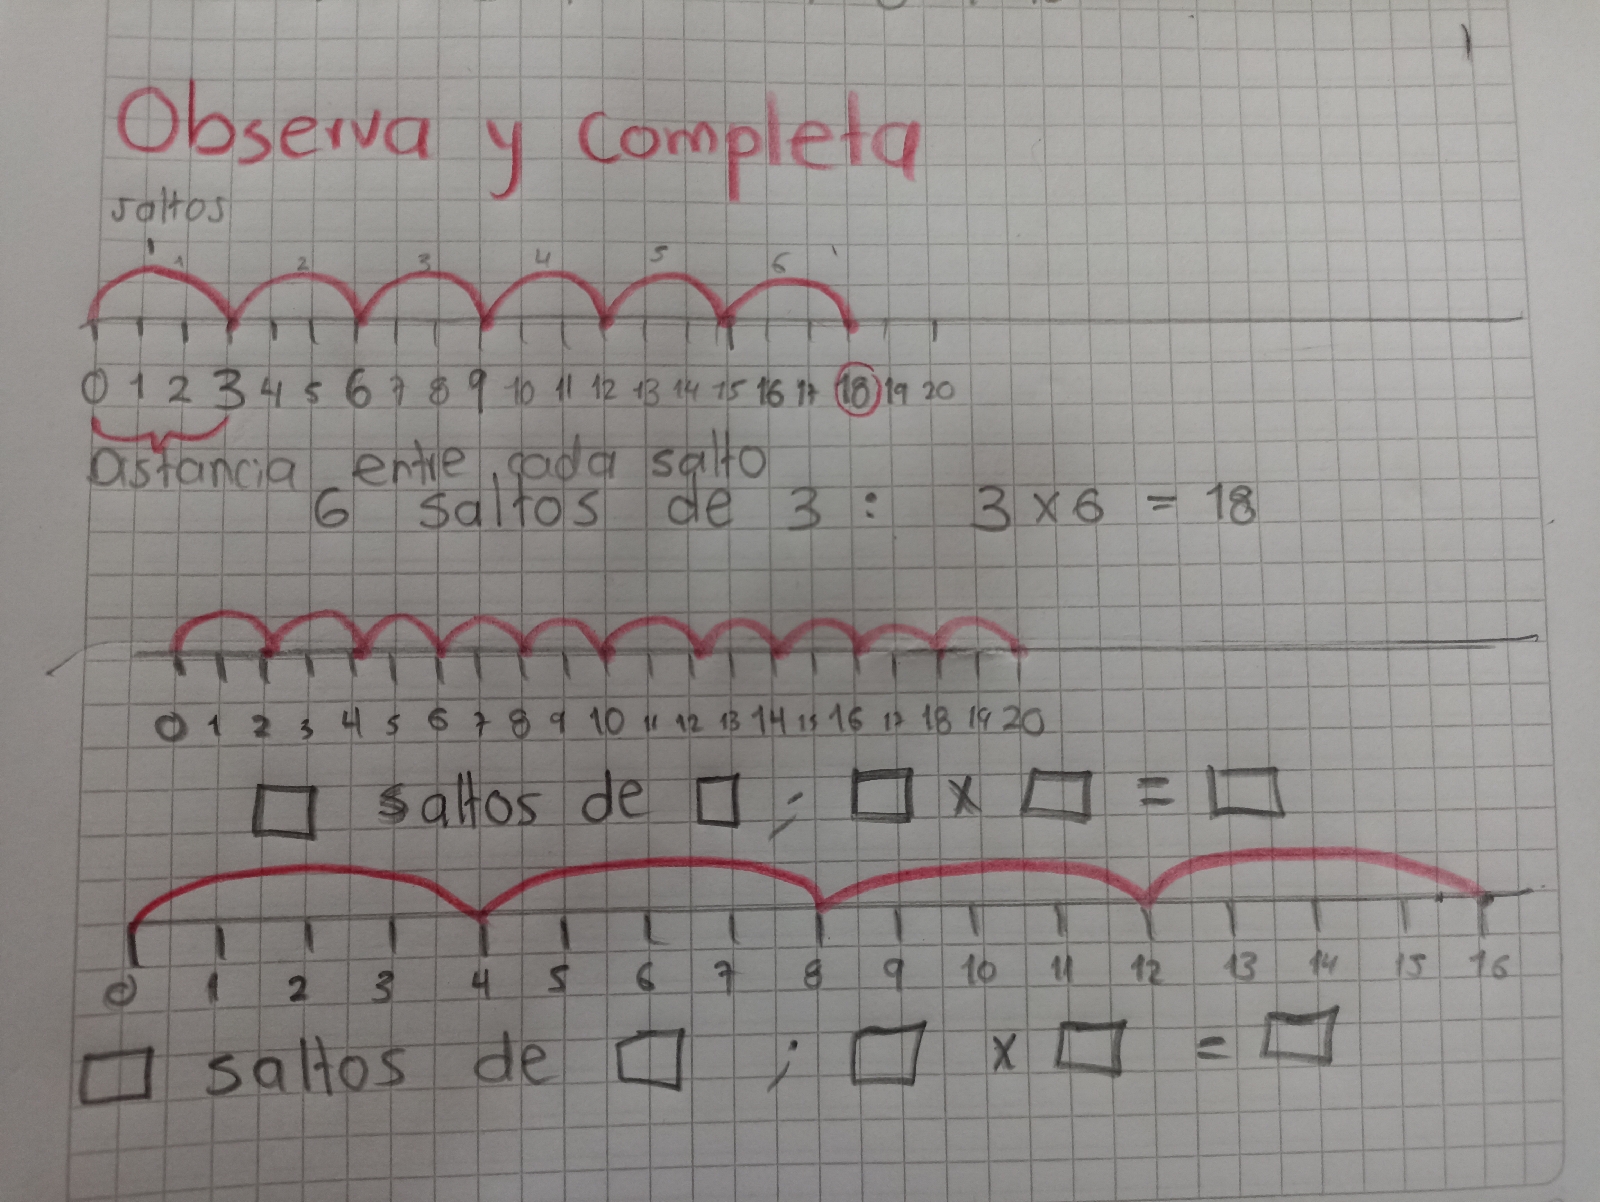 Observa y completa
saltos
1 2 3 4 5 6
0 1 2 3 4 5 6 7 8 9 10 11 12 13 14 15 16 17 18 19 20
Distancia entre cada salto
6 saltos de 3 : 3 x 6 = 18
0 1 2 3 4 5 6 7 8 9 10 11 12 13 14 15 16 17 18 19 20
□ saltos de □ ; □ x □ = □
0 1 2 3 4 5 6 7 8 9 10 11 12 13 14 15 16
□ saltos de □ ; □ x □ = □